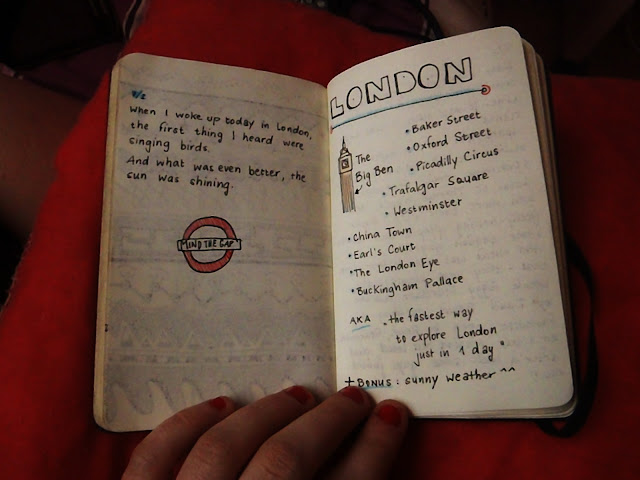 8/2
When I woke up today in London,
the first thing I heard were
singing birds.
And what was even better, the
sun was shining.
MIND THE GAP
LONDON
The
Big Ben
• Baker Street
• Oxford Street
• Picadilly Circus
• Trafalgar Square
• Westminster
• China Town
• Earl's Court
• The London Eye
• Buckingham Pallace
AKA „the fastest way
to explore London
just in 1 day"
+ BONUS : sunny weather ^^